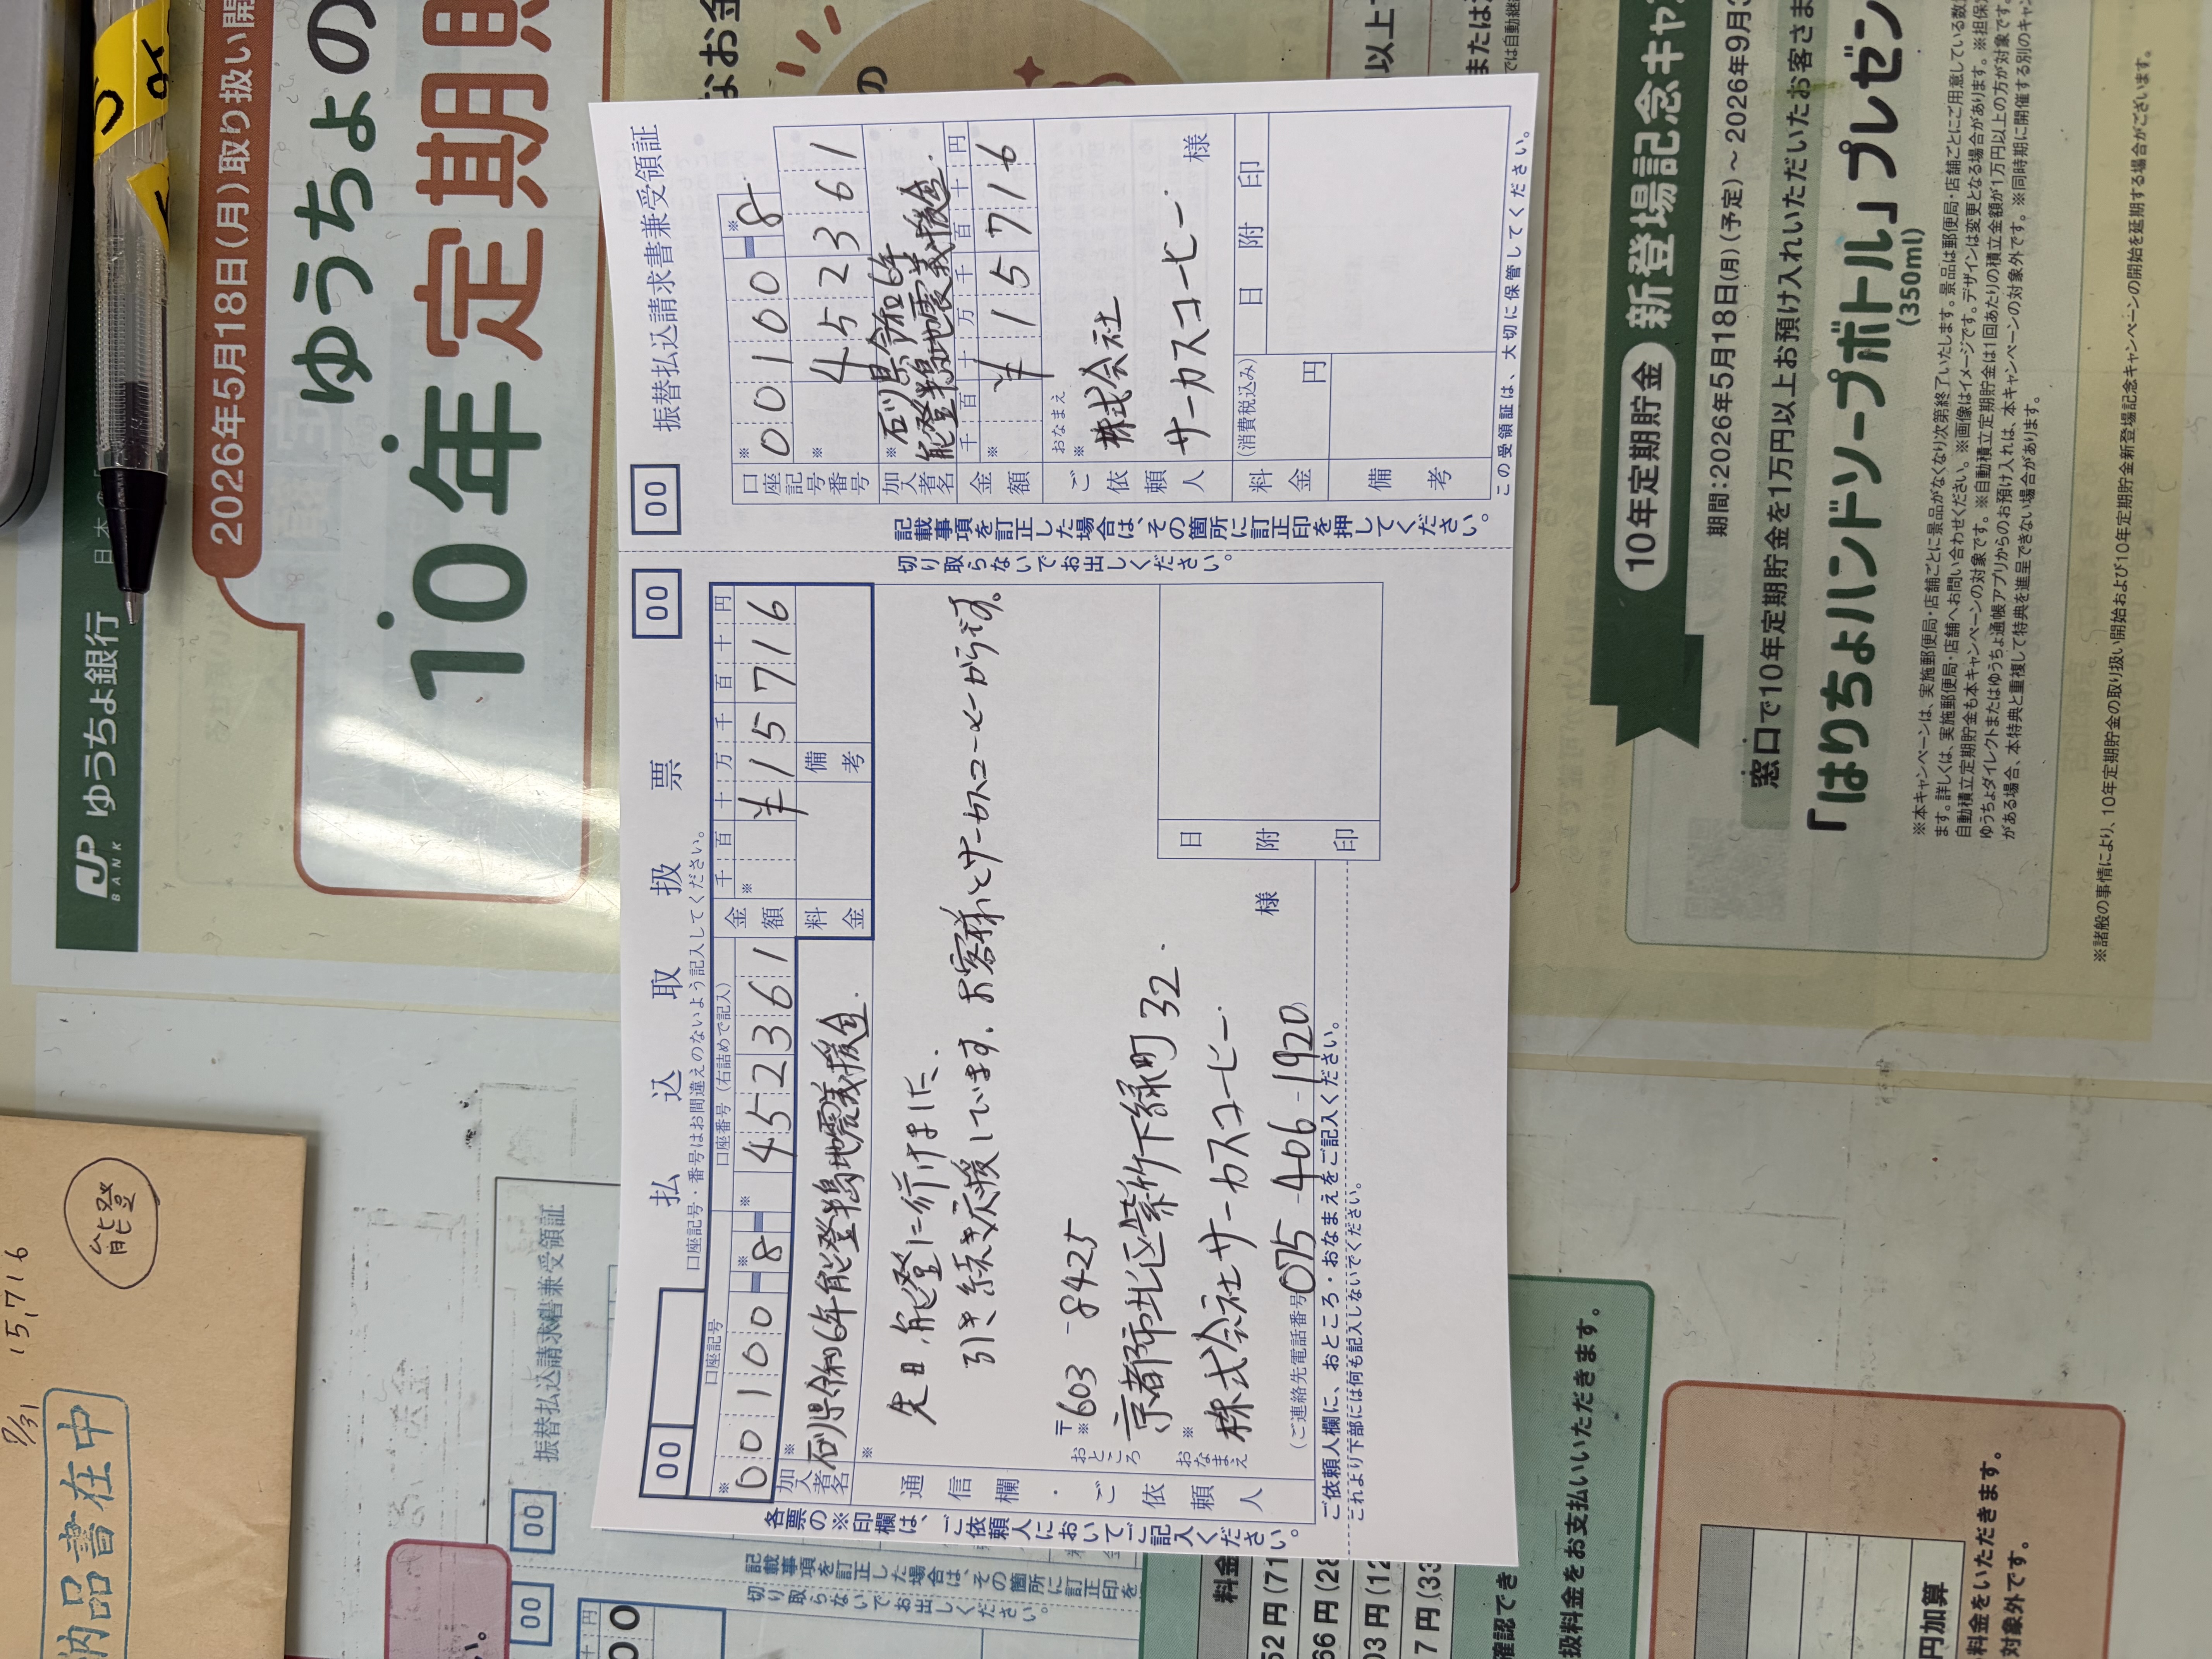 JP
BANK
ゆうちょ銀行
2026年5月18日(月)取り扱い開
ゆうちょの
10年
定期
なお金
の
以上
または
では自動継続
10年定期貯金
新登場記念キャン
期間:2026年5月18日(月)(予定)～2026年9月3
窓口で10年定期貯金を1万円以上お預け入れいただいたお客さま
「はりちょハンドソープボトル」プレゼン
(350ml)
※本キャンペーンは、実施郵便局・店舗ごとに景品がなくなり次第終了いたします。景品は郵便局・店舗ごとにご用意している数
ます。詳しくは、実施郵便局・店舗へお問い合わせください。※画像はイメージです。デザインは変更となる場合があります。※担保
自動積立定期貯金も本キャンペーンの対象です。※自動積立定期貯金は1回あたりの積立金額が1万円以上の方が対象です。
ゆうちょダイレクトまたはゆうちょ通帳アプリからのお預け入れは、本キャンペーンの対象外です。※同時期に開催する別のキャン
がある場合、本特典と重複して特典を進呈できない場合があります。
※諸般の事情により、10年定期貯金の取り扱い開始および10年定期貯金新登場記念キャンペーンの開始を延期する場合がございます。
00
払込取扱票
00
口座記号・番号はお間違えのないよう記入してください。
口座記号
口座番号(右詰めで記入)
※00100-※8
※452361
金額
千百十万千百十円
※¥15716
加入者名
※石川県令和6年能登半島地震義援金
料金
備考
通信欄・ご依頼人
※
先日、能登に行けました。
引き続き応援しています。お客様とサーカスコーヒーからです。
おところ
〒
※603-8425
京都市北区紫竹下緑町32
おなまえ
※
株式会社サーカスコーヒー
様
(ご連絡先電話番号 075-406-1920)
日附印
ご依頼人欄に、おところ・おなまえをご記入ください。
これより下部には何も記入しないでください。
各票の※印欄は、ご依頼人においてご記入ください。
切り取らないでお出しください。
記載事項を訂正した場合は、その箇所に訂正印を押してください。
00
振替払込請求書兼受領証
口座記号番号
※00100-※8
※452361
加入者名
※石川県令和6年
能登半島地震義援金
金額
千百十万千百十円
※¥15716
ご依頼人
おなまえ
※
株式会社
サーカスコーヒー
様
料金
(消費税込み)
円
日附印
備考
この受領証は、大切に保管してください。
納品書在中
7/31
15,716
能登
00
00
振替払込請求書兼受領証
記載事項を訂正した場合は、その箇所に訂正印を
切り取らないでお出しください。
料金
確認でき
扱料金をお支払いいただきます。
円加算
料金をいただきます。
対象外です。